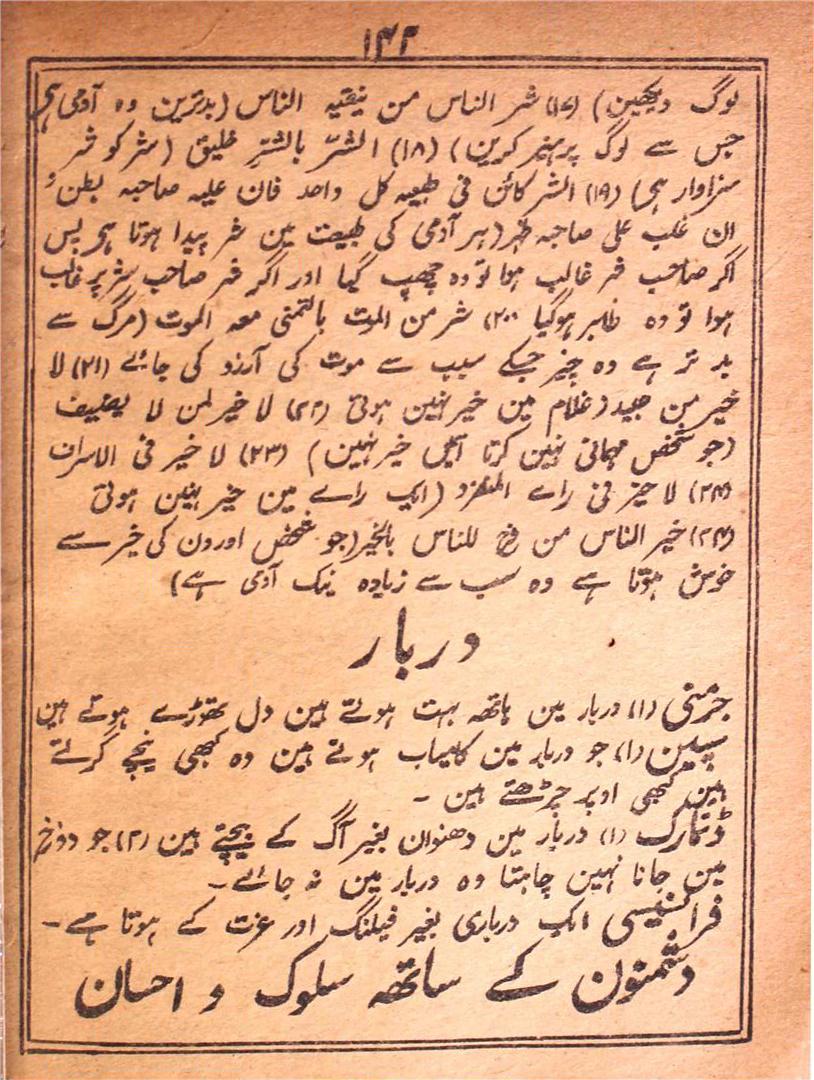 ۱۴۲
لوگ دیکھین) (۱۷) شر الناس من یتقیہ الناس (بدترین وہ آدمی ہی
جس سے لوگ پرہیز کرین) (۱۸) الشرّ بالشرّ خلیق (شر کو شر
سزاوار ہی) (۱۹) الشر کائن فی طبیعہ کل واحد فان علیہ صاحبہ بطن و
ان غلب علی صاحبہ ظہر (ہر آدمی کی طبیعت مین شر پیدا ہوتا ہی پس
اگر صاحب شر غالب ہوا تو وہ چھپ گیا اور اگر شر صاحب شر پر غالب
ہوا تو وہ ظاہر ہوگیا (۲۰) شر من الموت بالتمنی معہ الموت (مرگ سے
بد تر ہے وہ چیز جسکے سبب سے موت کی آرزو کی جائے (۲۱) لا
خیر من عبید (غلام مین خیر نہین ہوتی (۲۲) لا خیر لمن لا یضیف
(جو شخص مہمانی نہین کرتا اسمین خیر نہین) (۲۳) لا خیر فی الاسراف
(۲۴) لا خیر فی راے المنفرد (ایک راے مین خیر نہین ہوتی
(۲۴) خیر الناس من فرح للناس بالخیر (جو شخص اورون کی خیر سے
خوش ہوتا ہے وہ سب سے زیادہ نیک آدمی ہے)
دربار
جرمنی (۱) دربار مین ہاتھہ بہت ہوتے ہین دل تھوڑے ہوتے ہین
سپین (۱) جو دربار مین کامیاب ہوتے ہین وہ کبھی نیچے گرتے
ہین کبھی اوپر چڑھتے ہین ۔
ڈنمارک (۱) دربار مین دھنوان بغیر آگ کے بیچتے ہین (۲) جو دوزخ
مین جانا نہین چاہتا وہ دربار مین نہ جائے ۔
فرانسیسی ایک درباری بغیر فیلنگ اور عزت کے ہوتا ہے ۔
دشمنون کے ساتھہ سلوک و احسان